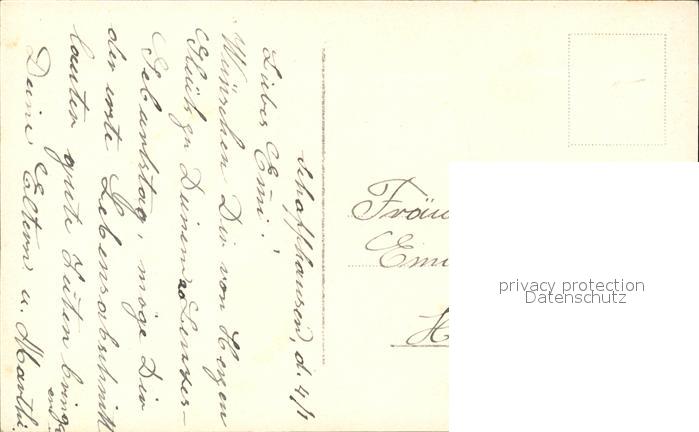 Schaffhausen, d. 4/1
Liebes Emi!
Wünschen Dir von Herzen
Glück zu Deinem 20 Lenzes-
Geburtstag, möge Dir
der erste Lebensabschnitt
lauter gute Zeiten bringen
Deine Eltern u. Marthi.
Fräu
Emi
H
privacy protection
Datenschutz